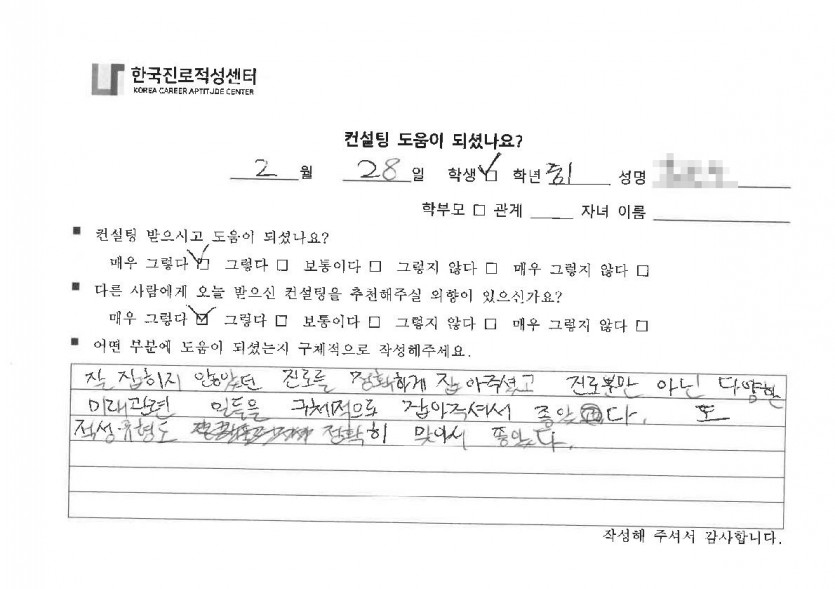 한국진로적성센터
KOREA CAREER APTITUDE CENTER
컨설팅 도움이 되셨나요?
2 월 28 일 학생 ☑ 학년 중1 성명
학부모 □ 관계 ____ 자녀 이름
■ 컨설팅 받으시고 도움이 되셨나요?
매우 그렇다 ☑ 그렇다 □ 보통이다 □ 그렇지 않다 □ 매우 그렇지 않다 □
■ 다른 사람에게 오늘 받으신 컨설팅을 추천해주실 의향이 있으신가요?
매우 그렇다 ☑ 그렇다 □ 보통이다 □ 그렇지 않다 □ 매우 그렇지 않다 □
■ 어떤 부분에 도움이 되셨는지 구체적으로 작성해주세요.
잘 잡히지 않았던 진로를 정확하게 잡아주셨고 진로뿐만 아닌 다양한
미래관련 일들을 구체적으로 잡아주셔서 좋았다. 또
적성유형도 정확히 맞아서 좋았다.
작성해 주셔서 감사합니다.